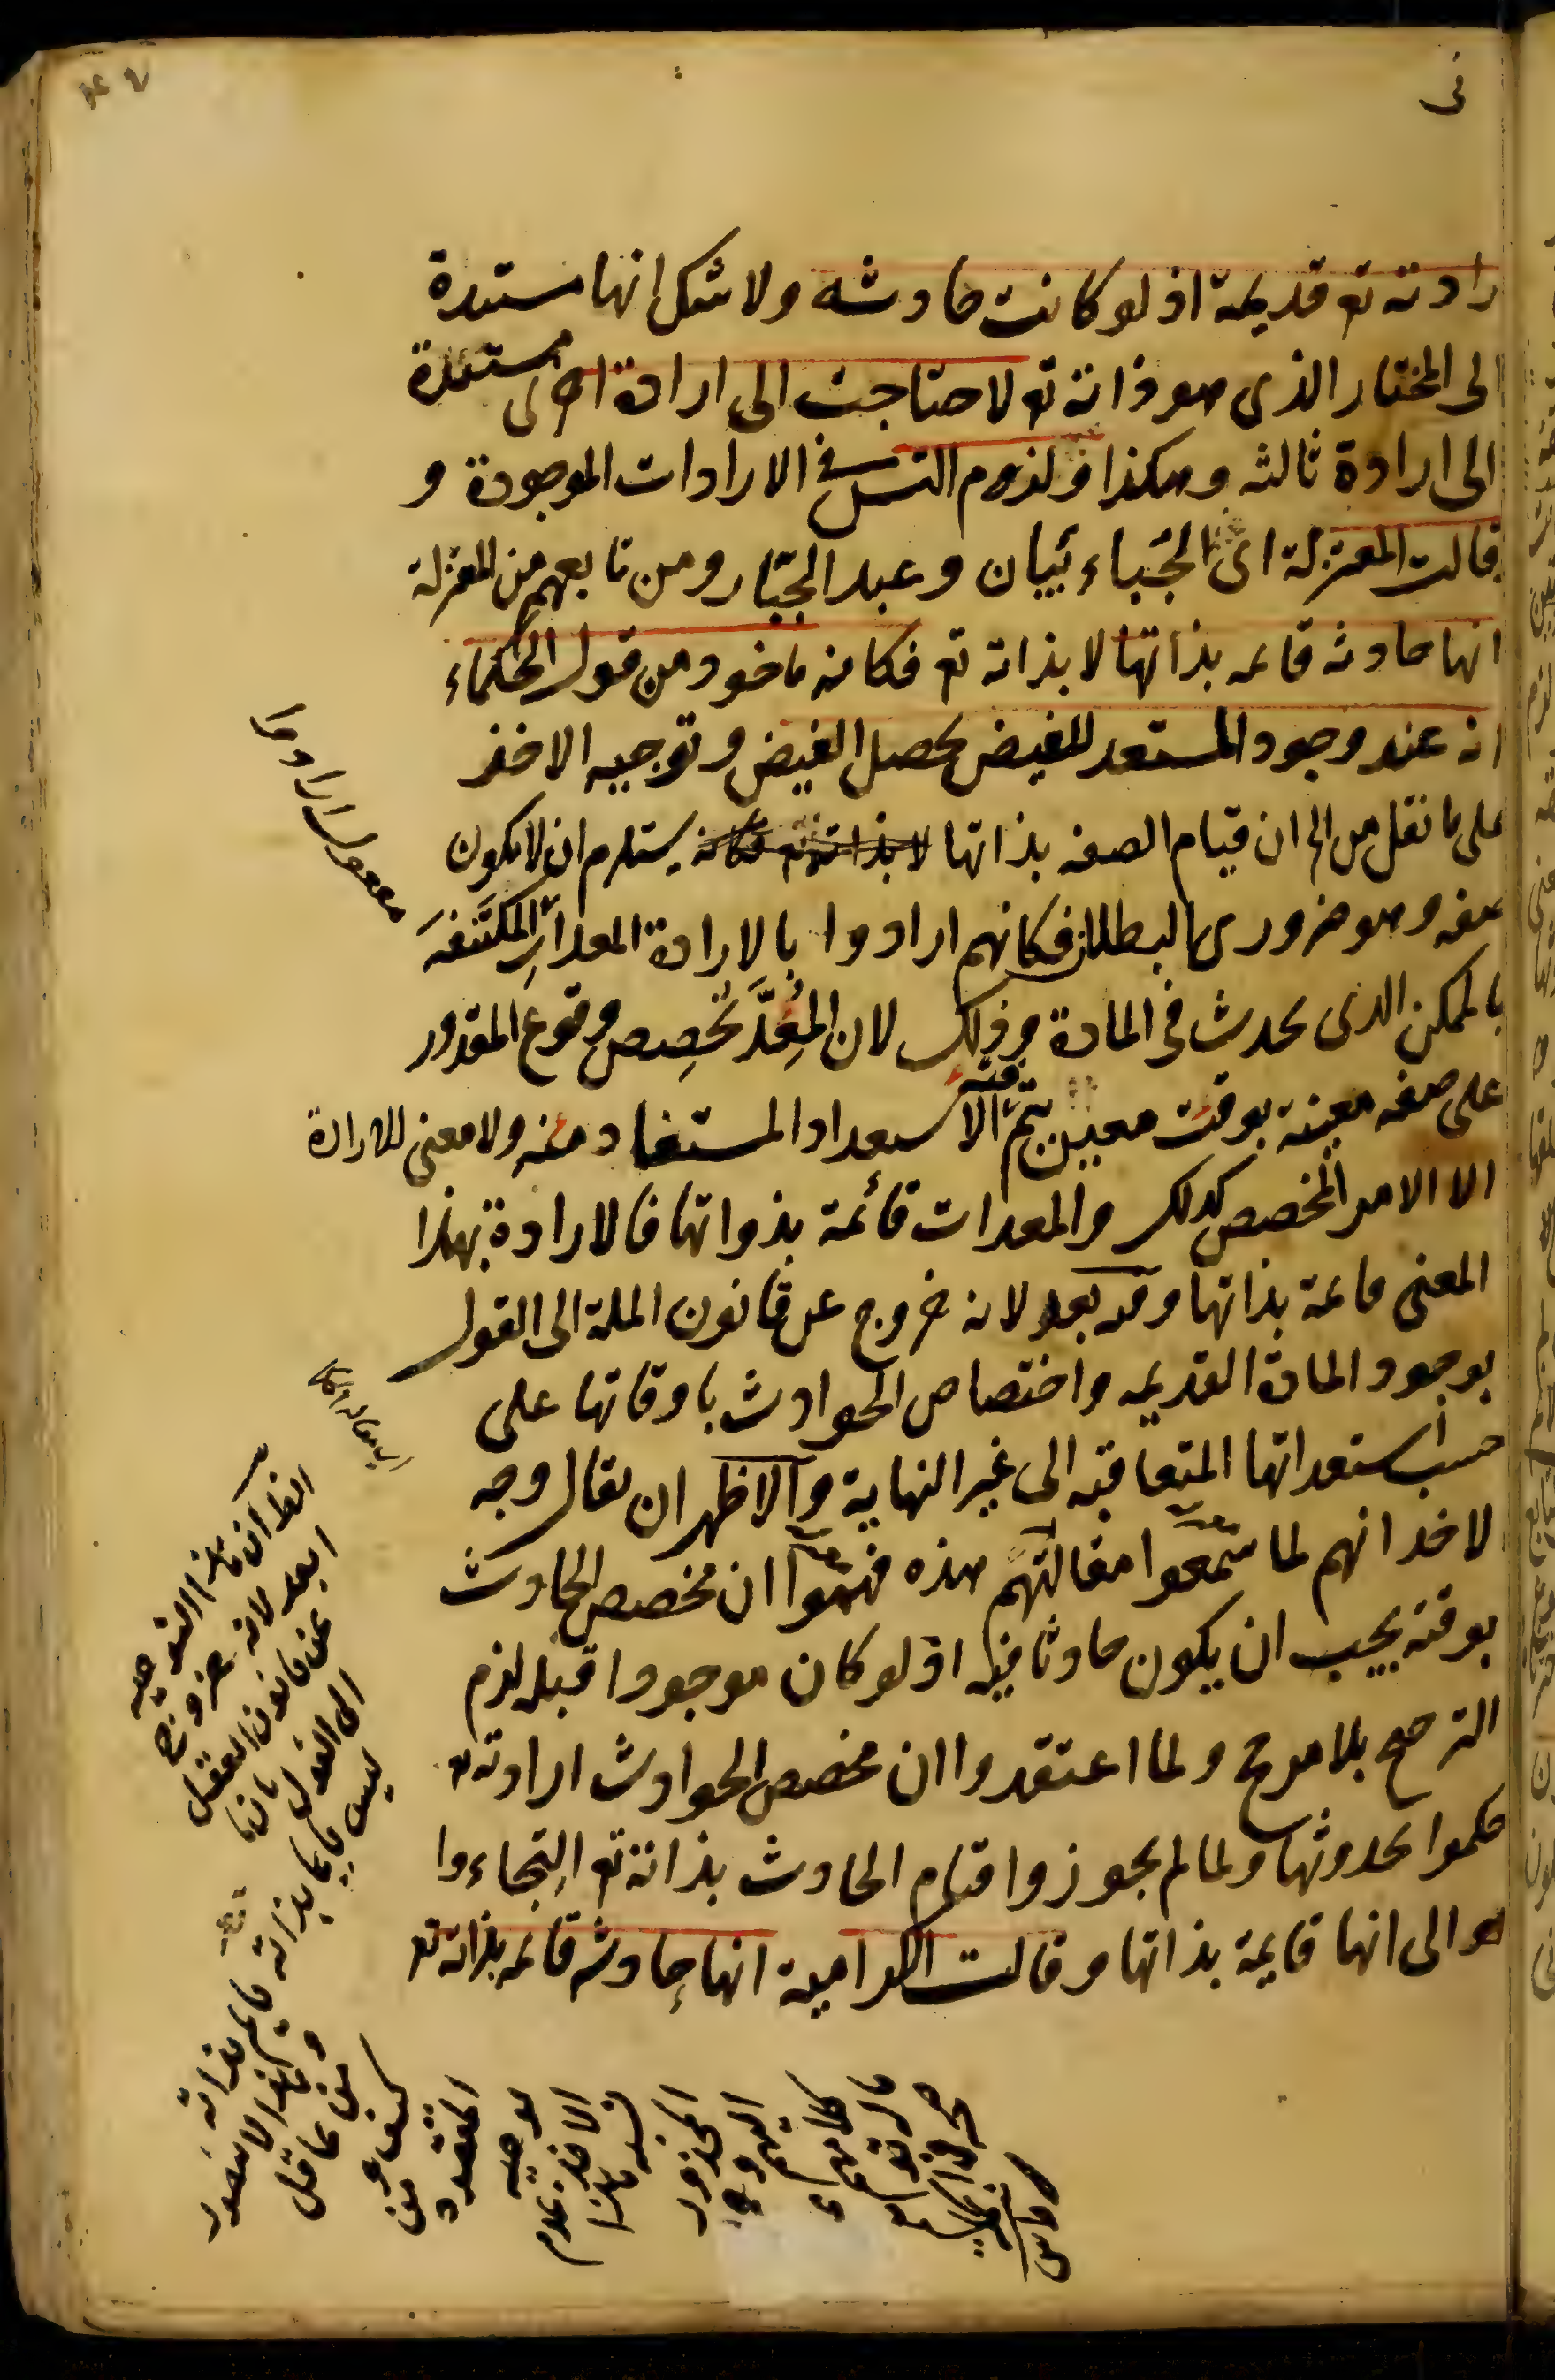 رادته تع قديمة اذ لو كانت حادثه ولا شك انها مستندة
الى المختار الذى هو ذاته تع لاحتاجت الى ارادة اخرى مستندة
الى ارادة ثالثه وهكذا ولزوم التس فى الارادات الموجودة و
قالت المعتزلة اى الجباءييان وعبد الجبار ومن تابعهم من المعتزلة
انها حادثه قائمه بذاتها لا بذاته تع فكانه ماخود من قول الحكماء
انه عند وجود المستعد للفيض يحصل الفيض وتوجيه الاخذ
على ما نقل من ان قيام الصفه بذاتها يستلزم ان لا يكون
صفه وهو ضرورى البطلان فكانهم ارادوا بالارادة المعدات المكتنفه
بالممكن الذى يحدث فى المادة وذلك لان المعد تخصص وقوع المقدور
على صفه معينة بوقت معين يتم فيه الاستعداد المستفاد منه ولا معنى للارادة
الا الامر المخصص كذلك والمعدات قائمة بذواتها فالارادة بهذا
المعنى قائمة بذاتها وفيه بعد لانه خروج عن قانون الملة الى القول
بوجود المادة القديمه واختصاص الحوادث باوقاتها على
حسب استعداتها المتعاقبه الى غير النهاية والاظهر ان يقال وجه
لاخذ انهم لما سمعوا مقالتهم هذه فهموا ان مخصص الحادث
بوقته يجب ان يكون حادثا فيه اذ لو كان موجودا قبله لزم
الترجيح بلا مرجح ولما اعتقدوا ان مخصص الحوادث ارادته تع
حكموا بحدوثها ولما لم يجوزوا قيام الحادث بذاته تع التجاءوا
هو الى انها قايمة بذاتها وقالت الكرامية انها حادثه قائمه بذاته تع
مفعول ارادوا
ان هذا التوجيه
ابعد لانه خروج
عن قانون العقل
الى القول بان ما
ليس قايما بذاته قايم بذاته
وهذا لا يتصور
من عاقل